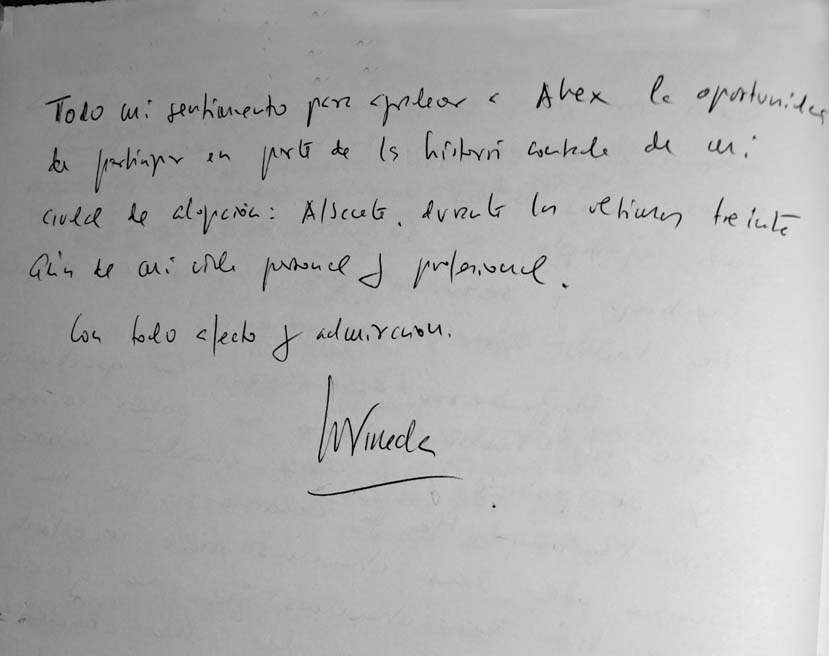 Todo mi sentimiento para agradecer a Alex la oportunidad
de participar en parte de la historia contada de mi
ciudad de adopción: Albacete, durante los últimos treinta
años de mi vida personal y profesional.
Con todo afecto y admiración.